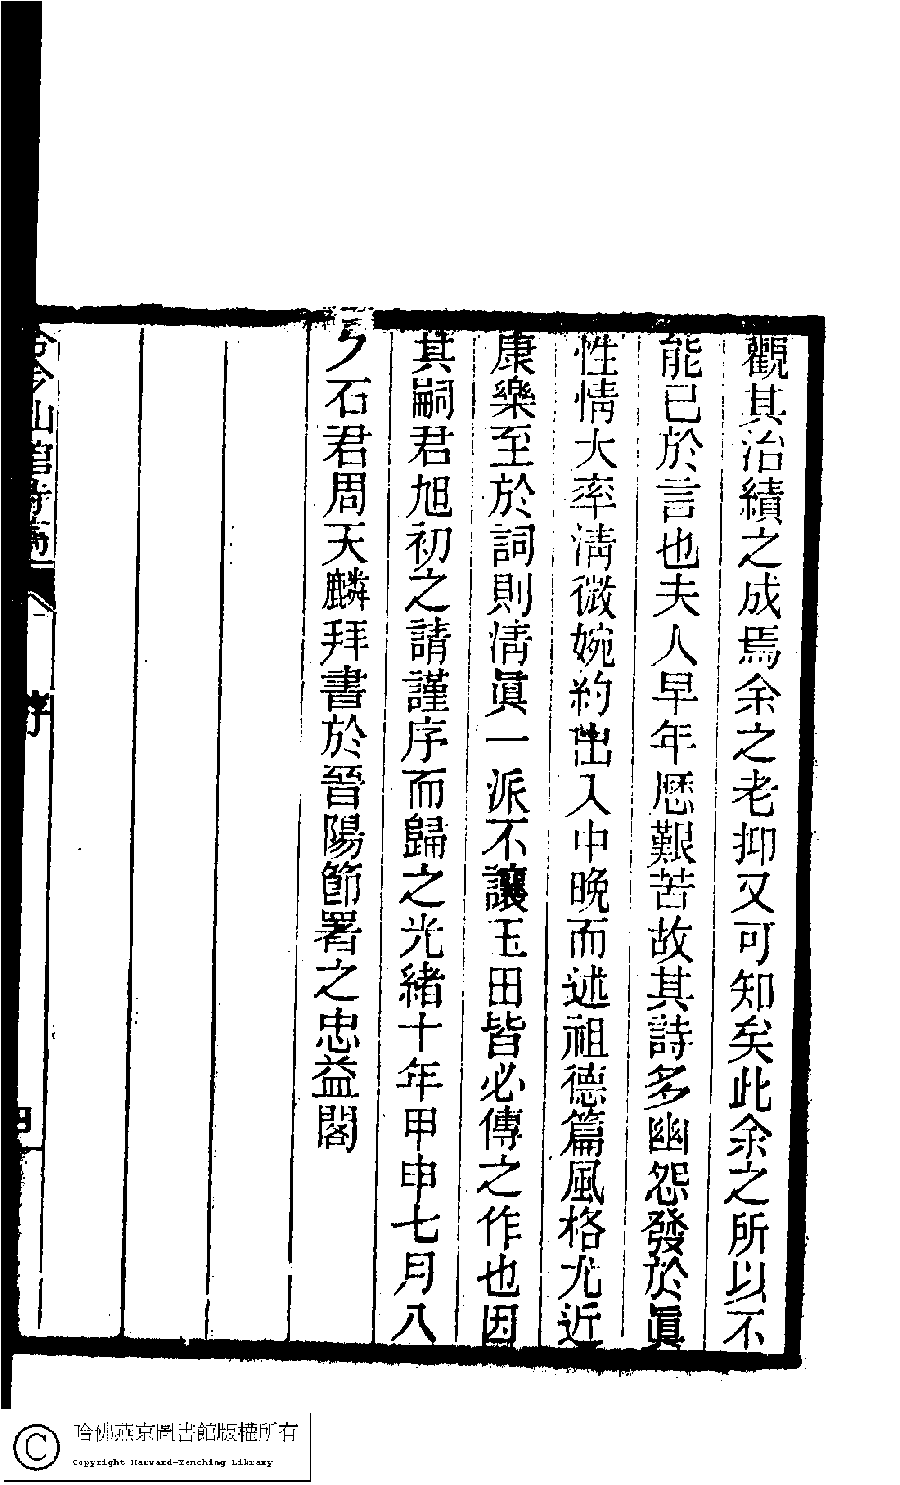 觀其治績之成焉余之老抑又可知矣此余之所以不
能已於言也夫人早年歷艱苦故其詩多幽怨發於眞
性情大率淸微婉約出入中晚而述祖德篇風格尤近
康樂至於詞則淸眞一派不讓玉田皆必傳之作也因
其嗣君旭初之請謹序而歸之光緒十年甲申七月八
石君周天麟拜書於晉陽節署之忠益閣
山館詩
序
四
哈佛燕京圖書館版權所有
Copyright Harvard-Yenching Library